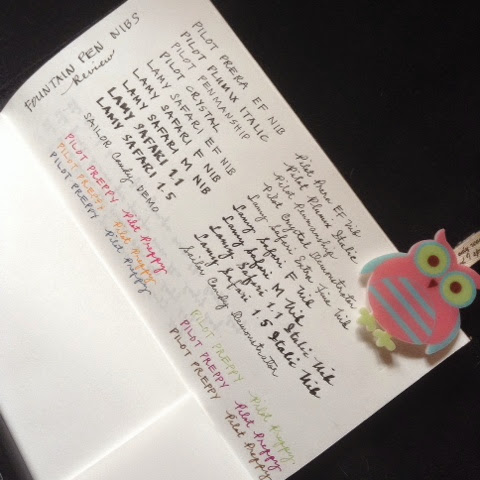 FOUNTAIN PEN NIBS
Review
PILOT PRERA EF NIB
PILOT PLUMIX ITALIC
PILOT PENMANSHIP
PILOT CRYSTAL
LAMY SAFARI EF NIB
LAMY SAFARI F NIB
LAMY SAFARI M NIB
LAMY SAFARI 1.1
LAMY SAFARI 1.5
SAILOR Candy DEMO
Pilot Prera EF Nib
Pilot Plumix Italic
Pilot Penmanship
Pilot Crystal Demonstrator
Lamy Safari Extra Fine Nib
Lamy Safari F Nib
Lamy Safari M Nib
Lamy Safari 1.1 Italic Nib
Lamy Safari 1.5 Italic Nib
Sailor Candy Demonstrator
PILOT PREPPY Pilot Preppy
PILOT PREPPY Pilot Preppy
PILOT PREPPY Pilot Preppy
PILOT PREPPY Pilot Preppy
PILOT PREPPY Pilot Preppy
PILOT PREPPY Pilot Preppy